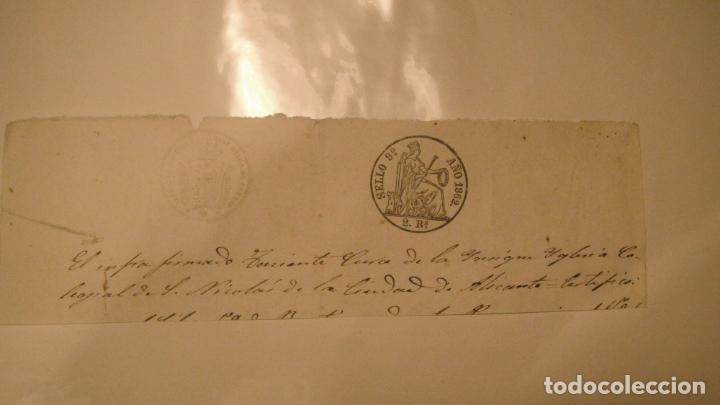 SELLO 9º AÑO 1862.
2. Rs
El infra firmado Teniente Cura de la Insigne Yglesia Co-
legial de S. Nicolás de la Ciudad de Alicante = Certifico:
todocoleccion
todocoleccion.net